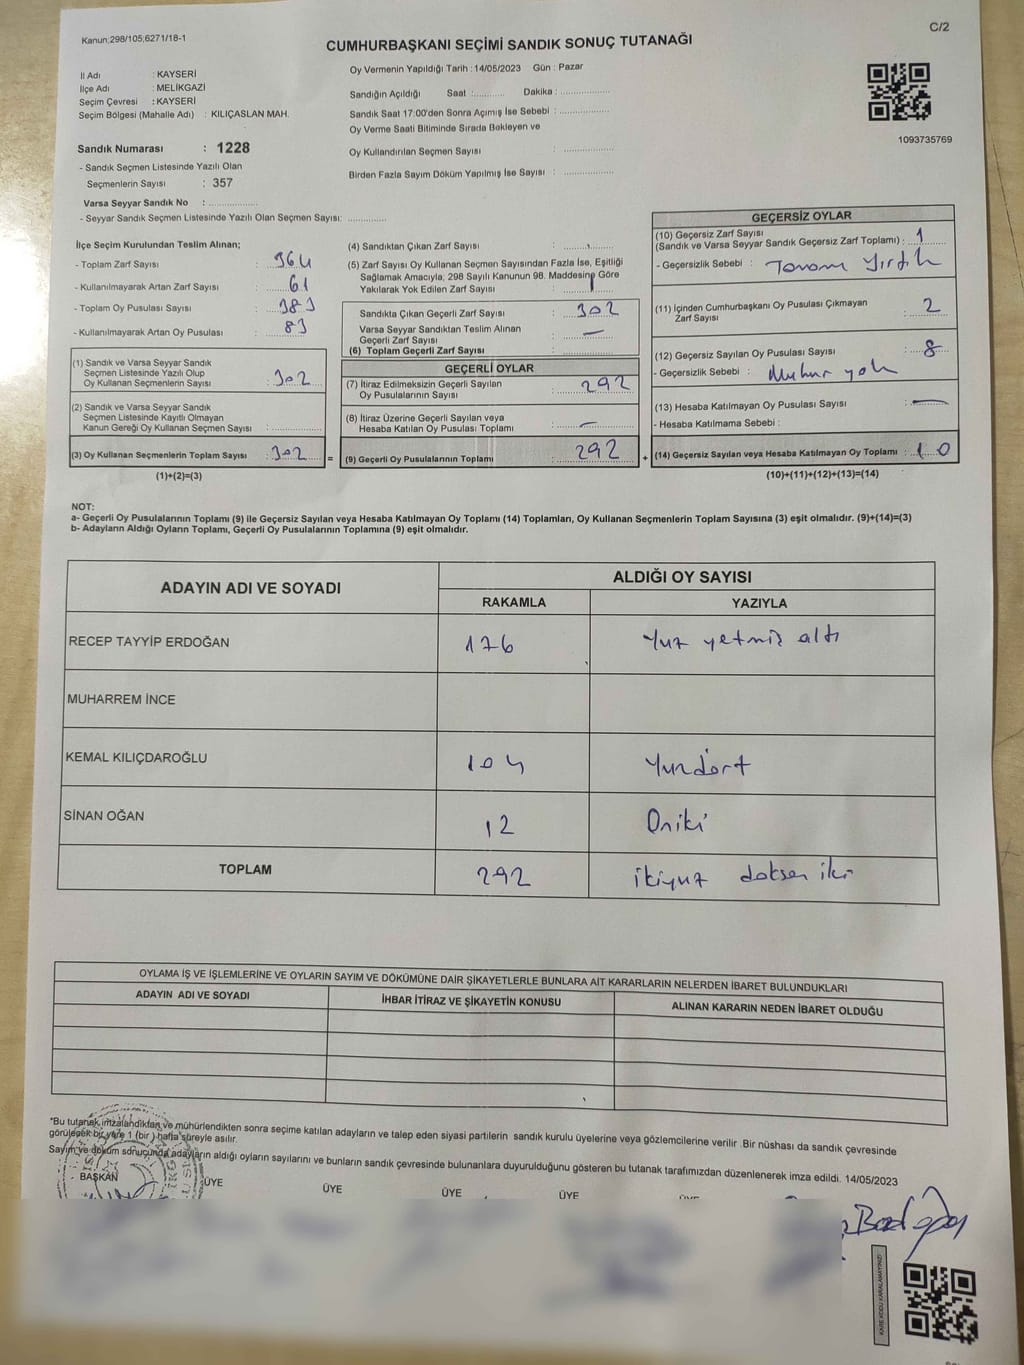 Kanun:298/105;6271/18-1
C/2
CUMHURBAŞKANI SEÇİMİ SANDIK SONUÇ TUTANAĞI
İl Adı : KAYSERİ
İlçe Adı : MELİKGAZİ
Seçim Çevresi : KAYSERİ
Seçim Bölgesi (Mahalle Adı) : KILIÇASLAN MAH.
Sandık Numarası : 1228
- Sandık Seçmen Listesinde Yazılı Olan
Seçmenlerin Sayısı : 357
Varsa Seyyar Sandık No :
- Seyyar Sandık Seçmen Listesinde Yazılı Olan Seçmen Sayısı:
Oy Vermenin Yapıldığı Tarih : 14/05/2023 Gün : Pazar
Sandığın Açıldığı Saat : Dakika :
Sandık Saat 17:00'den Sonra Açımış İse Sebebi :
Oy Verme Saati Bitiminde Sırada Bekleyen ve
Oy Kullandırılan Seçmen Sayısı :
Birden Fazla Sayım Döküm Yapılmış İse Sayısı :
1093735769
İlçe Seçim Kurulundan Teslim Alınan;
- Toplam Zarf Sayısı : 364
- Kullanılmayarak Artan Zarf Sayısı : 61
- Toplam Oy Pusulası Sayısı : 383
- Kullanılmayarak Artan Oy Pusulası : 83
(1) Sandık ve Varsa Seyyar Sandık
Seçmen Listesinde Yazılı Olup
Oy Kullanan Seçmenlerin Sayısı : 302
(2) Sandık ve Varsa Seyyar Sandık
Seçmen Listesinde Kayıtlı Olmayan
Kanun Gereği Oy Kullanan Seçmen Sayısı :
(3) Oy Kullanan Seçmenlerin Toplam Sayısı : 302
(1)+(2)=(3)
(4) Sandıktan Çıkan Zarf Sayısı :
(5) Zarf Sayısı Oy Kullanan Seçmen Sayısından Fazla İse, Eşitliği
Sağlamak Amacıyla, 298 Sayılı Kanunun 98. Maddesine Göre
Yakılarak Yok Edilen Zarf Sayısı : 1
Sandıkta Çıkan Geçerli Zarf Sayısı : 302
Varsa Seyyar Sandıktan Teslim Alınan
Geçerli Zarf Sayısı : —
(6) Toplam Geçerli Zarf Sayısı :
GEÇERLİ OYLAR
(7) İtiraz Edilmeksizin Geçerli Sayılan
Oy Pusulalarının Sayısı : 292
(8) İtiraz Üzerine Geçerli Sayılan veya
Hesaba Katılan Oy Pusulası Toplamı : —
= (9) Geçerli Oy Pusulalarının Toplamı : 292
GEÇERSİZ OYLAR
(10) Geçersiz Zarf Sayısı
(Sandık ve Varsa Seyyar Sandık Geçersiz Zarf Toplamı) : 1
- Geçersizlik Sebebi : Tamam Yırtık
(11) İçinden Cumhurbaşkanı Oy Pusulası Çıkmayan
Zarf Sayısı : 2
(12) Geçersiz Sayılan Oy Pusulası Sayısı : 8
- Geçersizlik Sebebi : Muhur yok
(13) Hesaba Katılmayan Oy Pusulası Sayısı : —
- Hesaba Katılmama Sebebi :
+ (14) Geçersiz Sayılan veya Hesaba Katılmayan Oy Toplamı : 10
(10)+(11)+(12)+(13)=(14)
NOT:
a- Geçerli Oy Pusulalarının Toplamı (9) ile Geçersiz Sayılan veya Hesaba Katılmayan Oy Toplamı (14) Toplamları, Oy Kullanan Seçmenlerin Toplam Sayısına (3) eşit olmalıdır. (9)+(14)=(3)
b- Adayların Aldığı Oyların Toplamı, Geçerli Oy Pusulalarının Toplamına (9) eşit olmalıdır.
ADAYIN ADI VE SOYADI
ALDIĞI OY SAYISI
RAKAMLA YAZIYLA
RECEP TAYYİP ERDOĞAN 176 Yuz yetmiş altı
MUHARREM İNCE
KEMAL KILIÇDAROĞLU 104 Yuzdört
SİNAN OĞAN 12 Oniki
TOPLAM 292 ikiyuz doksan iki
OYLAMA İŞ VE İŞLEMLERİNE VE OYLARIN SAYIM VE DÖKÜMÜNE DAİR ŞİKAYETLERLE BUNLARA AİT KARARLARIN NELERDEN İBARET BULUNDUKLARI
ADAYIN ADI VE SOYADI İHBAR İTİRAZ VE ŞİKAYETİN KONUSU ALINAN KARARIN NEDEN İBARET OLDUĞU
*Bu tutanak imzalandıktan ve mühürlendikten sonra seçime katılan adayların ve talep eden siyasi partilerin sandık kurulu üyelerine veya gözlemcilerine verilir. Bir nüshası da sandık çevresinde
görülecek bir yere 1 (bir) hafta süreyle asılır.
Sayım ve döküm sonucunda adayların aldığı oyların sayılarını ve bunların sandık çevresinde bulunanlara duyurulduğunu gösteren bu tutanak tarafımızdan düzenlenerek imza edildi. 14/05/2023
BAŞKAN ÜYE ÜYE ÜYE ÜYE
KARE KODU KARALAMAYINIZ!